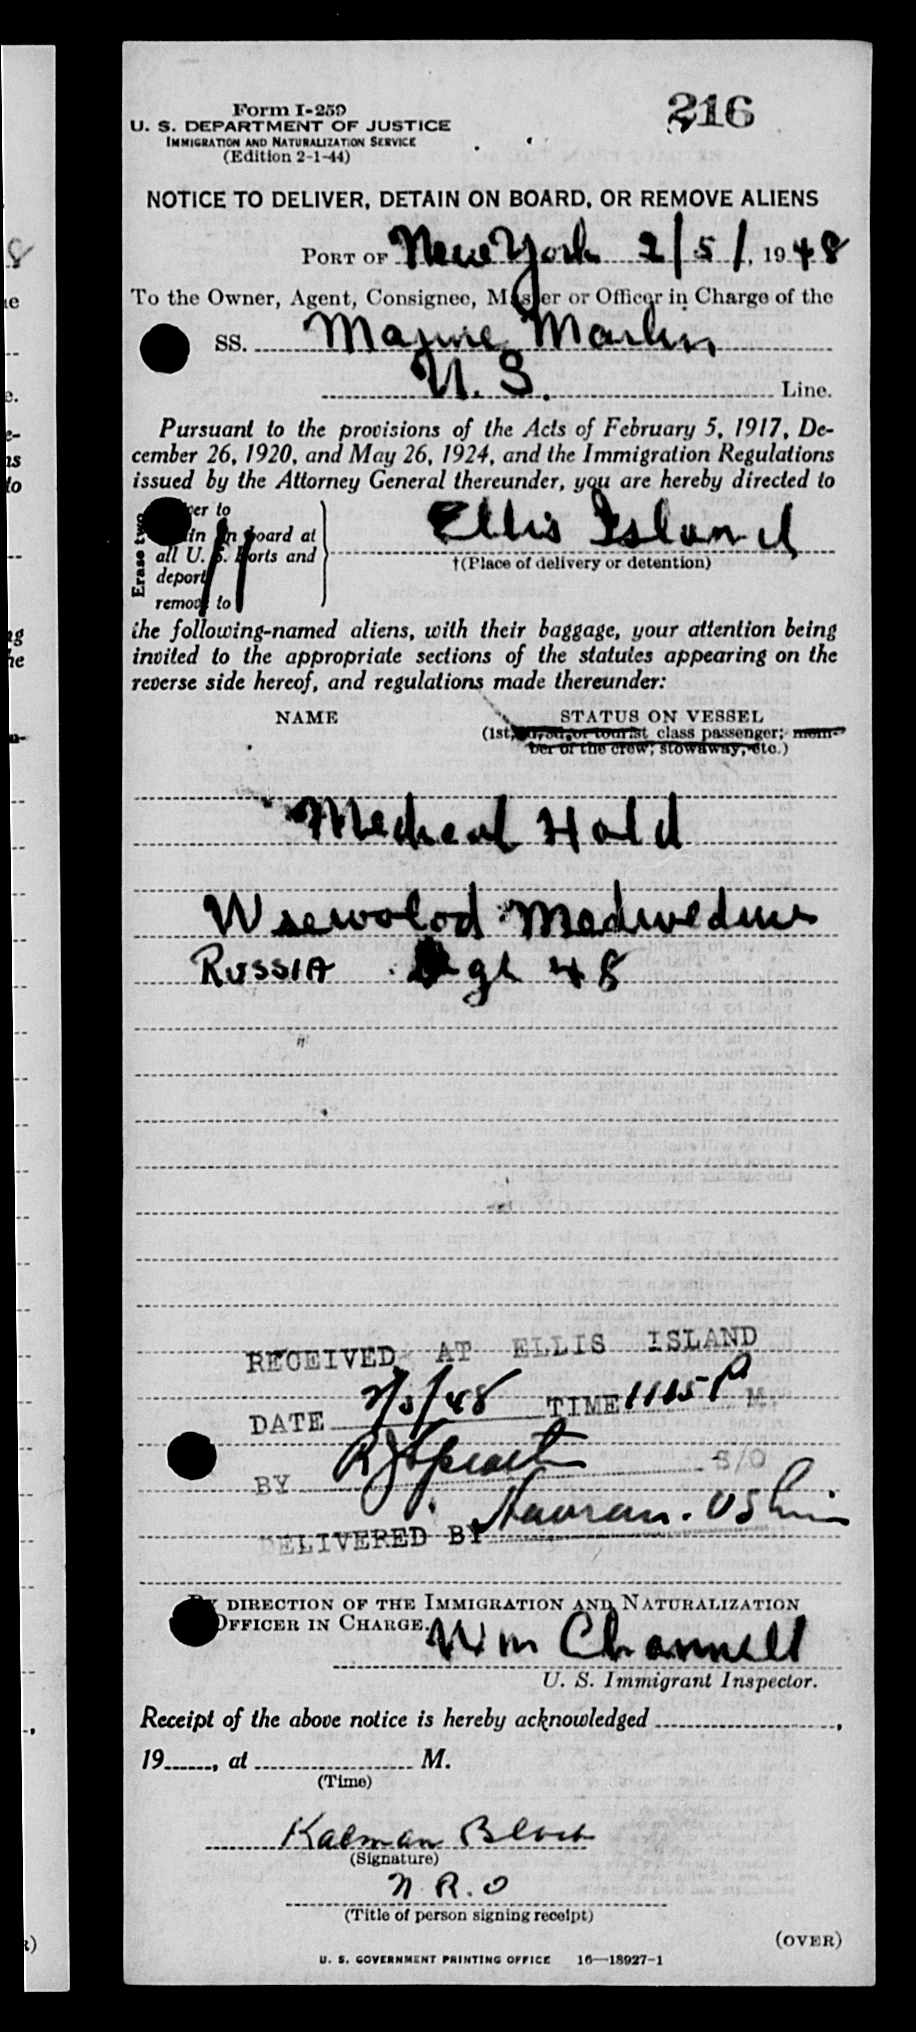 216
Form I-259
U. S. DEPARTMENT OF JUSTICE
IMMIGRATION AND NATURALIZATION SERVICE
(Edition 2-1-44)
NOTICE TO DELIVER, DETAIN ON BOARD, OR REMOVE ALIENS
PORT OF New York 2/5/, 1948
To the Owner, Agent, Consignee, Master or Officer in Charge of the
SS. Marine Marlin
U. S. Line.
Pursuant to the provisions of the Acts of February 5, 1917, De-
cember 26, 1920, and May 26, 1924, and the Immigration Regulations
issued by the Attorney General thereunder, you are hereby directed to
Erase two
to
on board at
all U. S. ports and
deport
remove to
Ellis Island
†(Place of delivery or detention)
the following-named aliens, with their baggage, your attention being
invited to the appropriate sections of the statutes appearing on the
reverse side hereof, and regulations made thereunder:
NAME STATUS ON VESSEL
(1st, or tourist class passenger; mem-
ber of the crew; stowaway, etc.)
Medical Hold
Wsewolod
RUSSIA Age 48
RECEIVED AT ELLIS ISLAND
DATE 2/5/48 TIME 1115 P M.
BY S/O
DELIVERED BY
BY DIRECTION OF THE IMMIGRATION AND NATURALIZATION
OFFICER IN CHARGE.
Wm Channell
U. S. Immigrant Inspector.
Receipt of the above notice is hereby acknowledged ,
19 , at M.
(Time)
Kalman Bloch
(Signature)
N. R. O
(Title of person signing receipt)
(OVER)
U. S. GOVERNMENT PRINTING OFFICE 16—18927-1